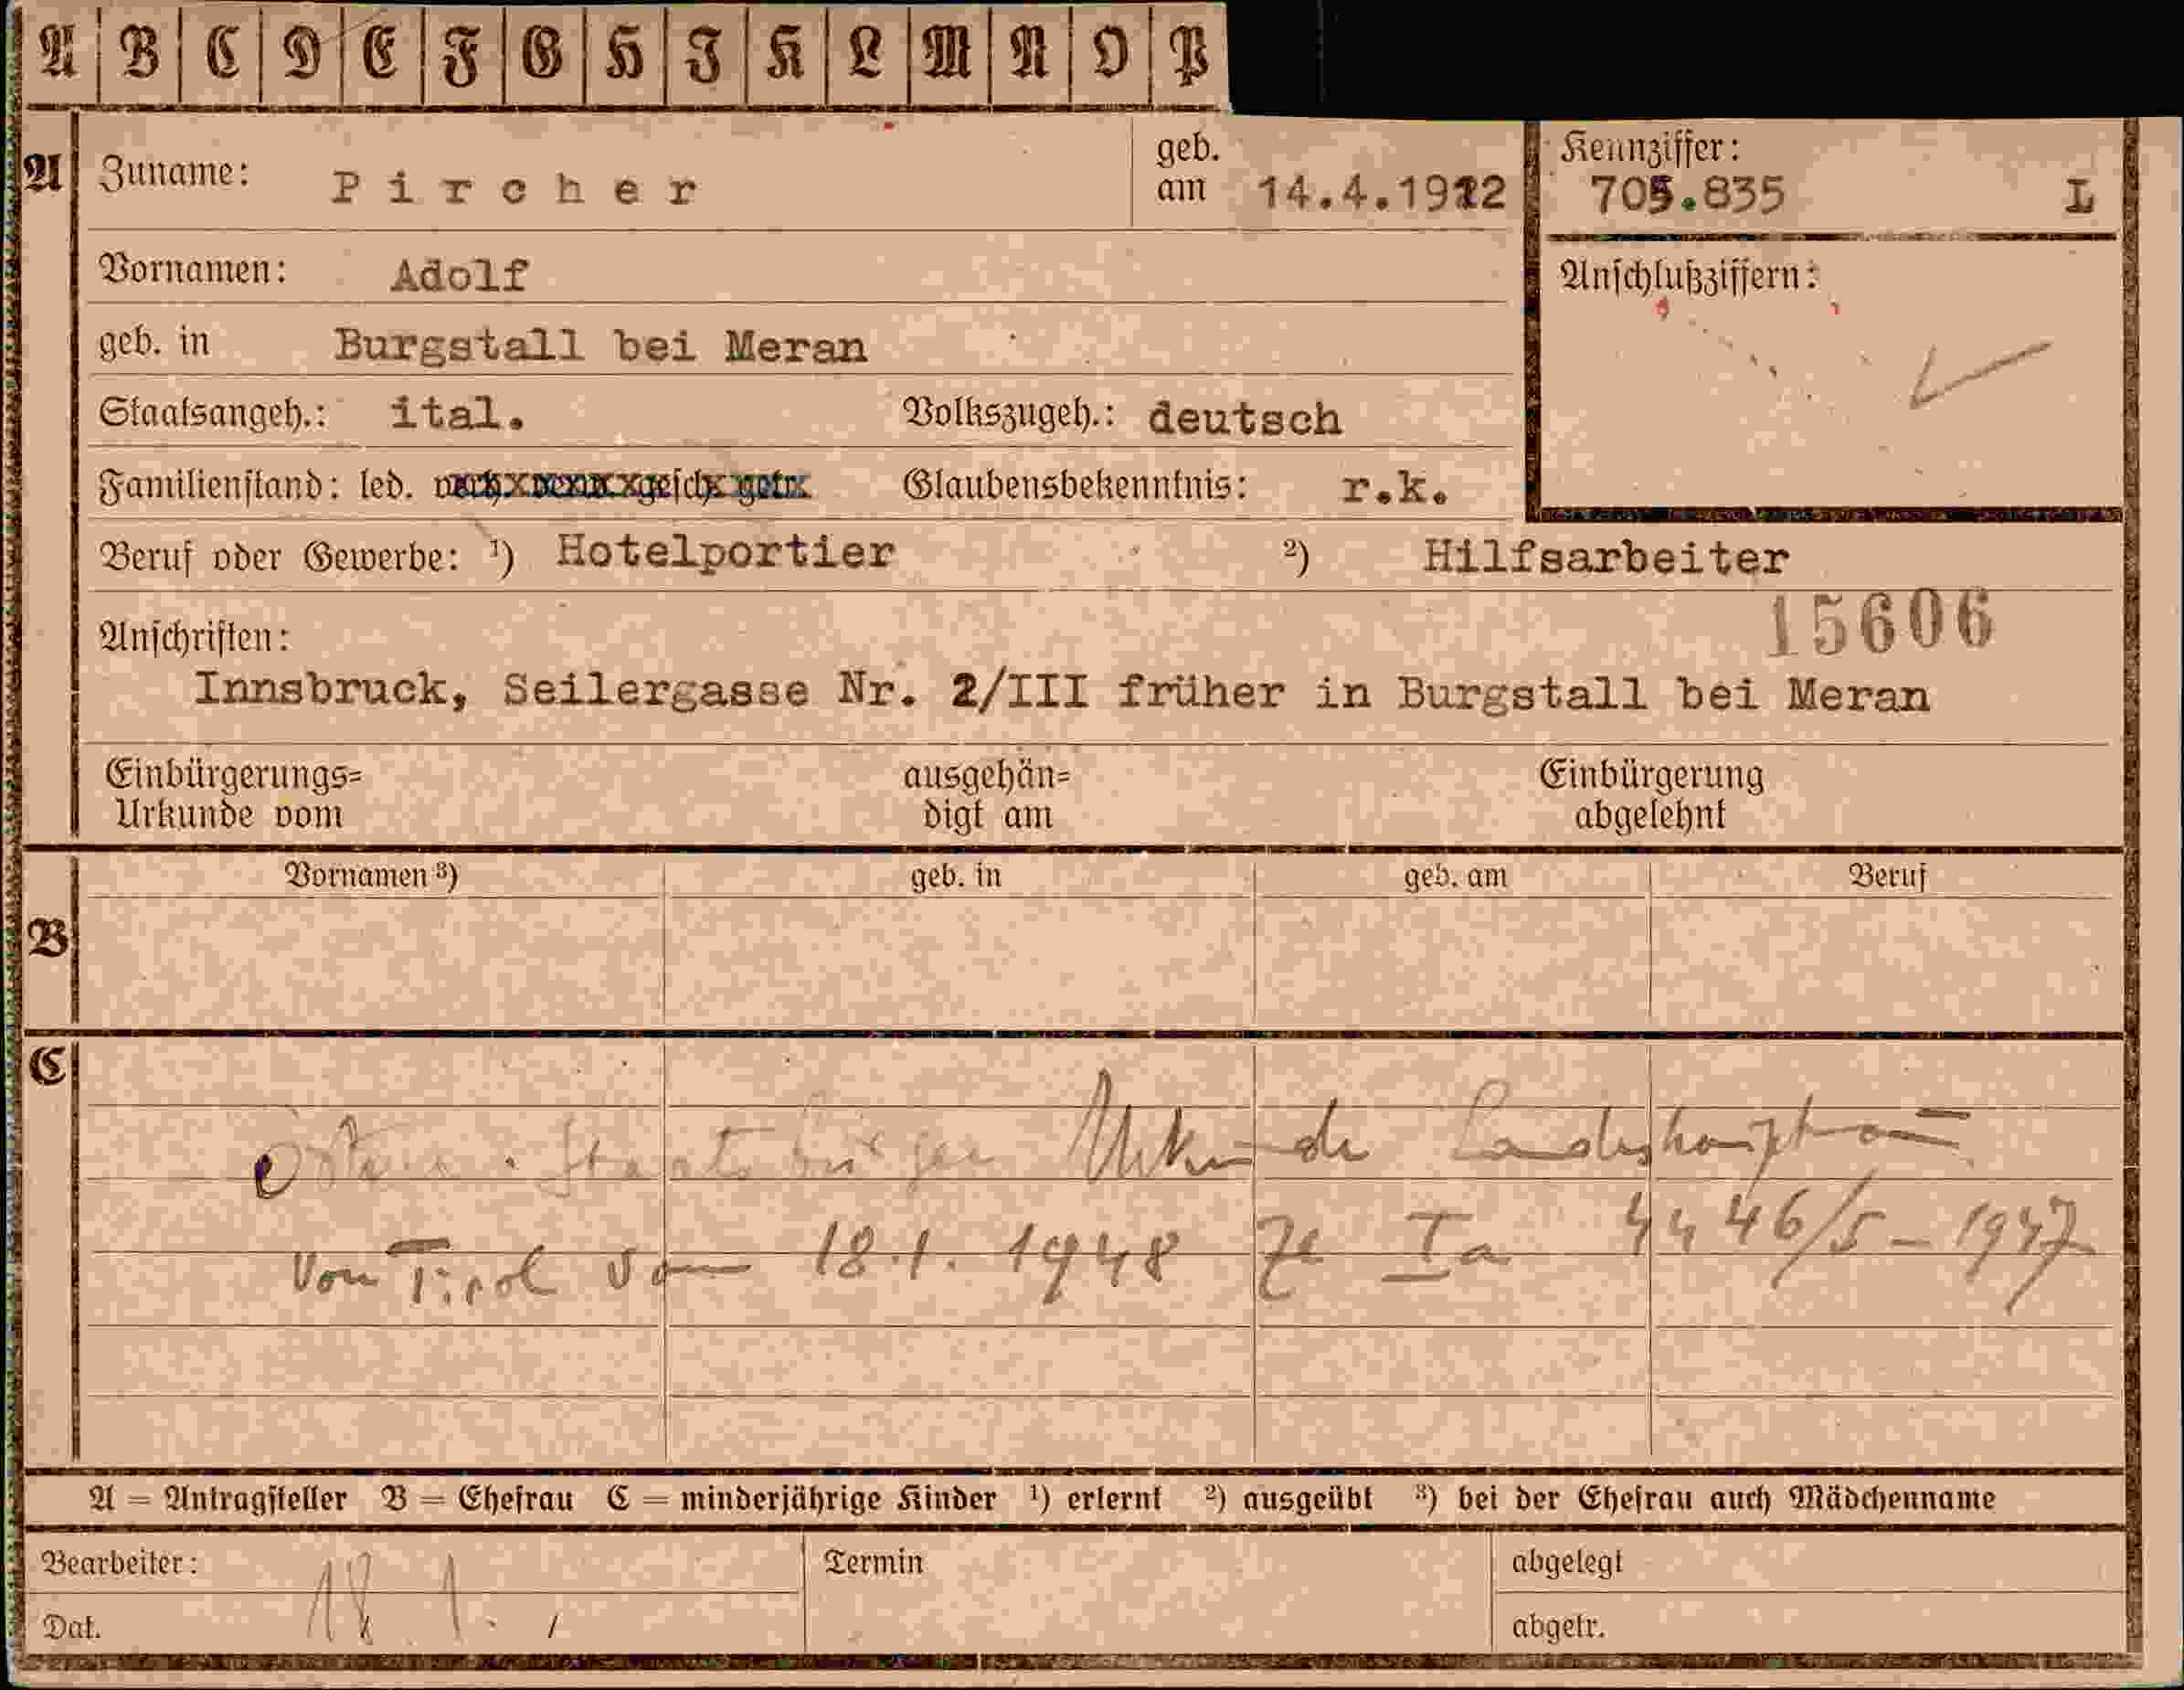 A B C D E F G H I K L M N O P
A Zuname: Pircher geb. am 14.4.1912 Kennziffer: 705.835 L
Vornamen: Adolf Anschlußziffern:
geb. in Burgstall bei Meran
Staatsangeh.: ital. Volkszugeh.: deutsch
Familienstand: led. verh. verw. gesch. getr. Glaubensbekenntnis: r.k.
Beruf oder Gewerbe: ¹) Hotelportier ²) Hilfsarbeiter
15606
Anschriften:
Innsbruck, Seilergasse Nr. 2/III früher in Burgstall bei Meran
Einbürgerungs= ausgehän= Einbürgerung
Urkunde vom digt am abgelehnt
Vornamen ³) geb. in geb. am Beruf
B
C
Staatsbürger Urkunde Landeshauptm
von Tirol vom 18.1.1948 Ia 4446/5-1947
A = Antragsteller B = Ehefrau C = minderjährige Kinder ¹) erlernt ²) ausgeübt ³) bei der Ehefrau auch Mädchenname
Bearbeiter: Termin abgelegt
Dat. abgetr.